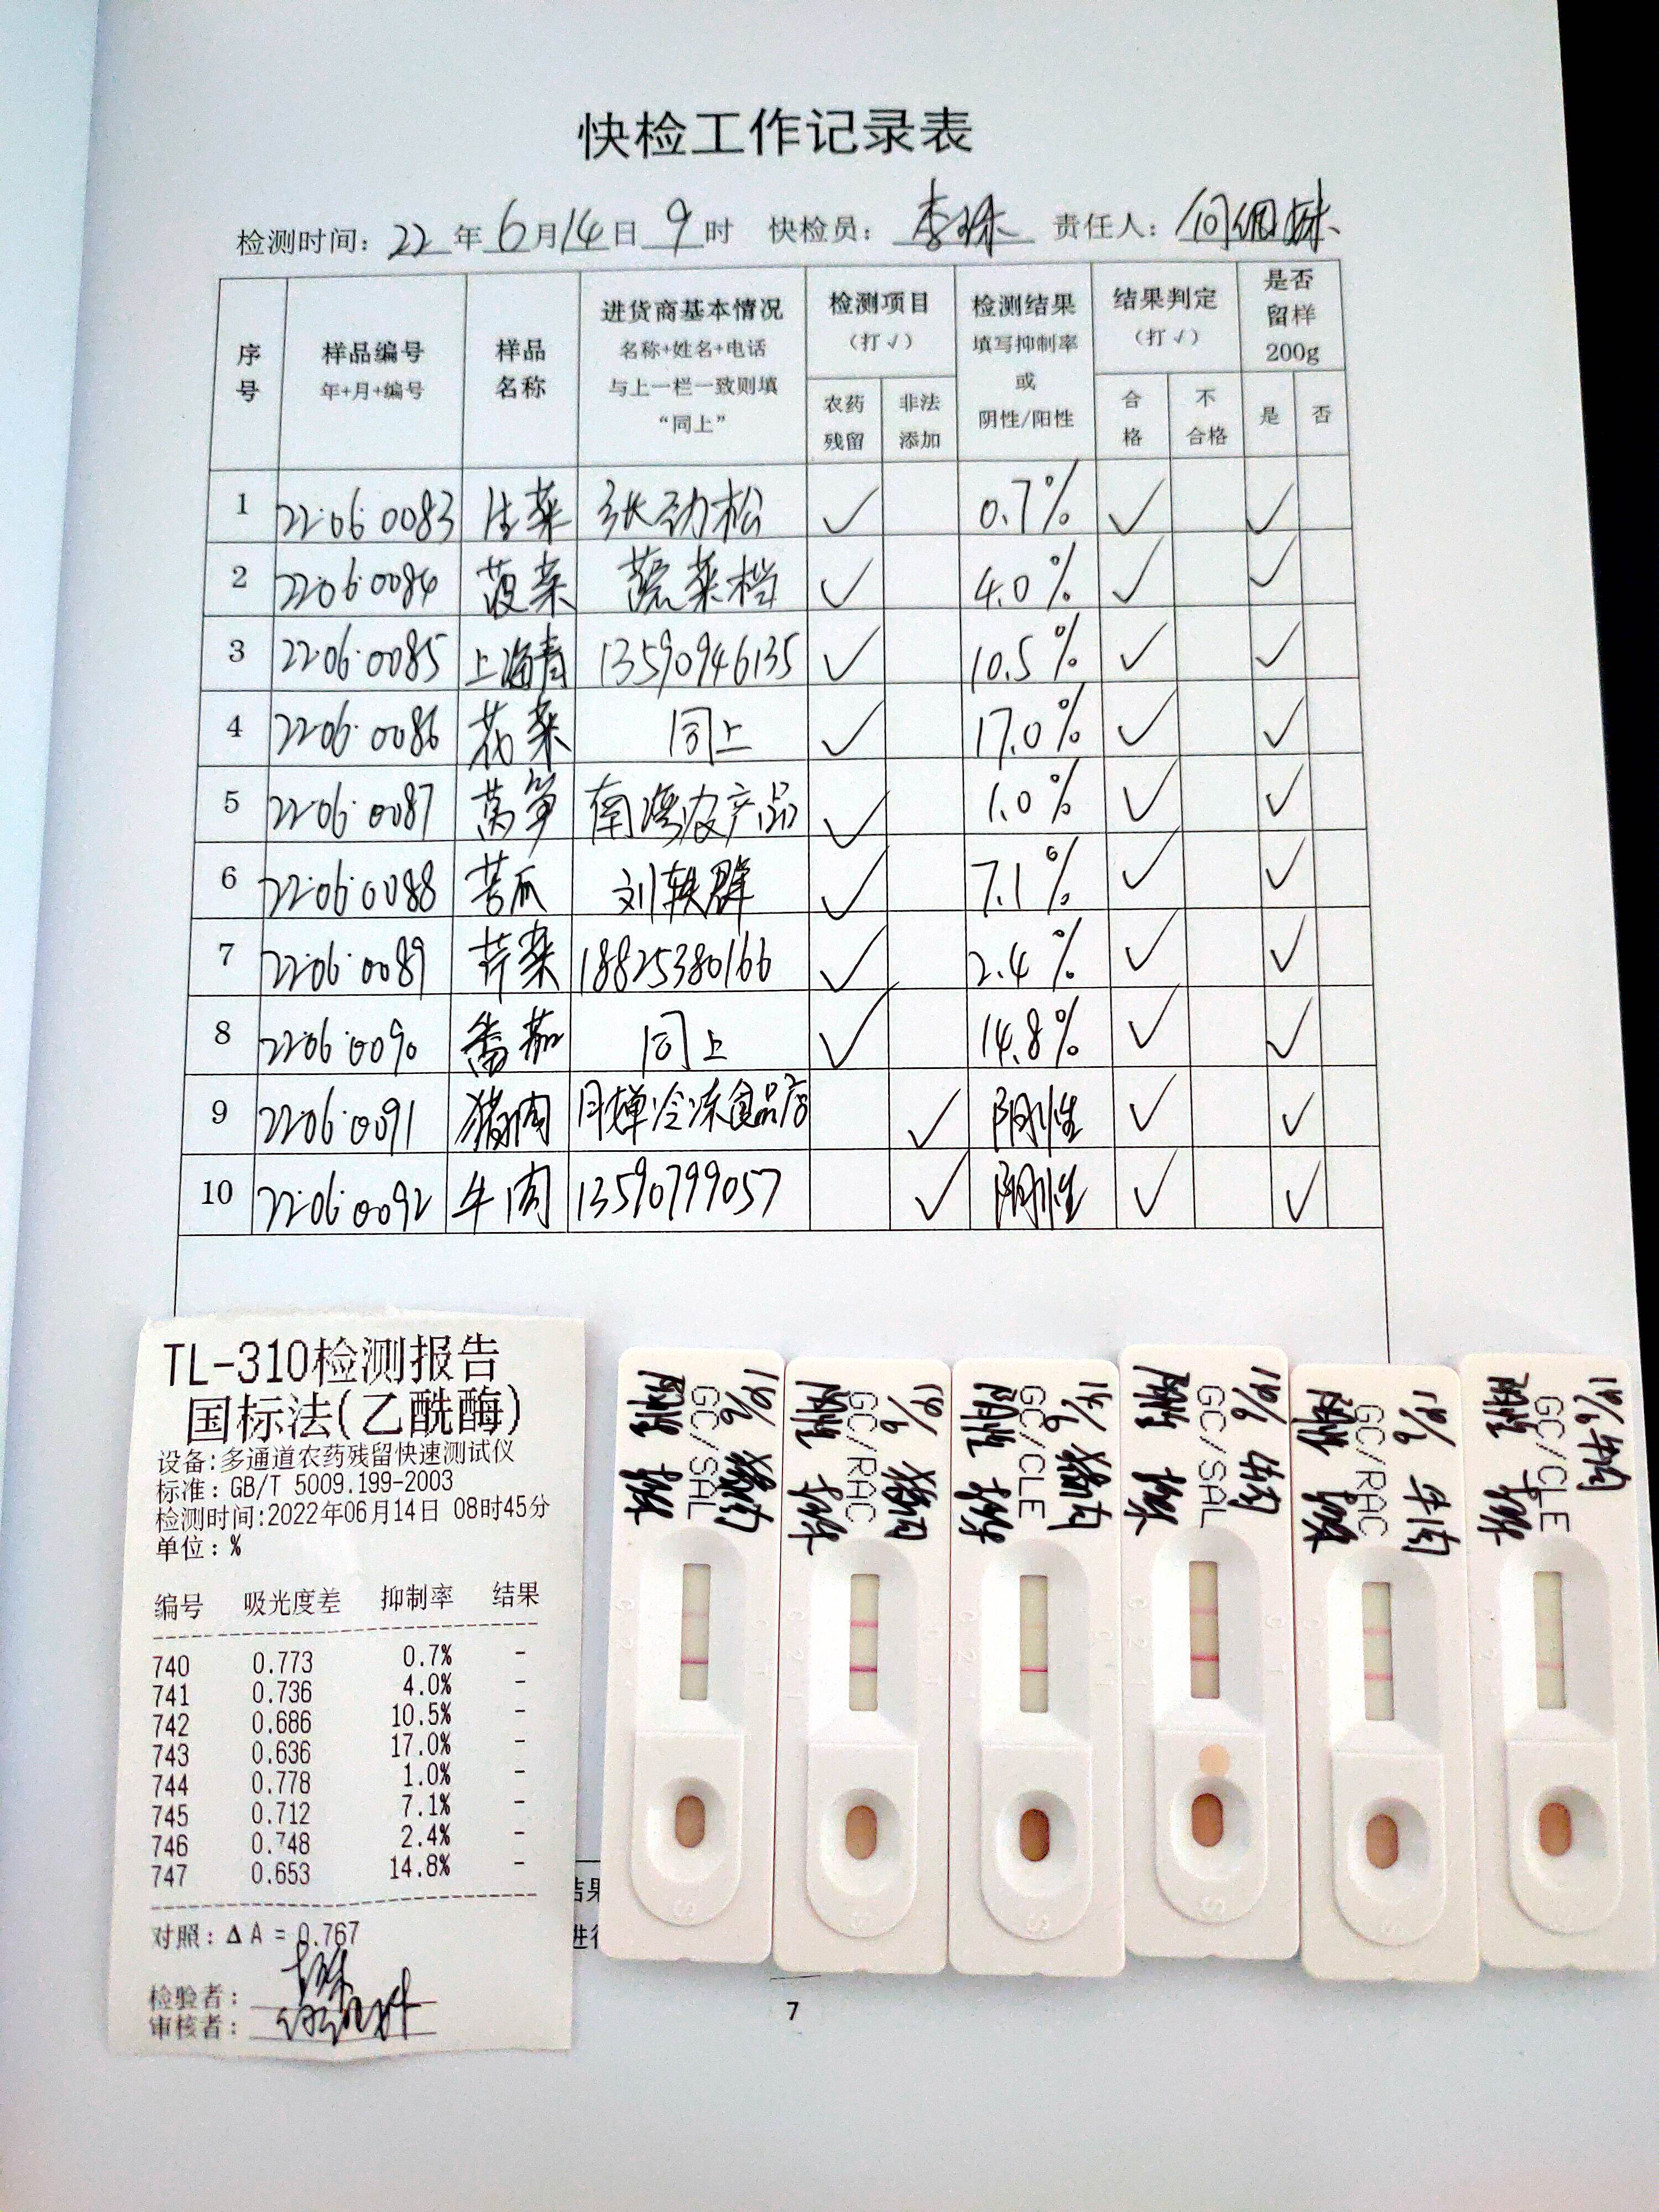 快检工作记录表
检测时间: 22 年 6 月 14 日 9 时 快检员: 李珠 责任人:
序号 样品编号 年+月+编号 样品名称 进货商基本情况 名称+姓名+电话 与上一栏一致则填“同上” 检测项目 (打√) 农药残留 非法添加 检测结果 填写抑制率或阴性/阳性 结果判定 (打√) 合格 不合格 是否留样200g 是 否
1 22·06·0083 生菜 张劲松 √ 0.7% √ √
2 22·06·0084 菠菜 蔬菜档 √ 4.0% √ √
3 22·06·0085 上海青 13590946135 √ 10.5% √ √
4 22·06·0086 花菜 同上 √ 17.0% √ √
5 22·06·0087 莴笋 南湾农产品 √ 1.0% √ √
6 22·06·0088 苦瓜 刘轶群 √ 7.1% √ √
7 22·06·0089 芹菜 18825380166 √ 2.4% √ √
8 22·06·0090 番茄 同上 √ 14.8% √ √
9 22·06·0091 猪肉 冷冻食品店 √ 阴性 √ √
10 22·06·0092 牛肉 13590799057 √ 阴性 √ √
TL-310检测报告
国标法(乙酰酶)
设备:多通道农药残留快速测试仪
标准: GB/T 5009.199-2003
检测时间:2022年06月14日 08时45分
单位: %
编号 吸光度差 抑制率 结果
740 0.773 0.7% -
741 0.736 4.0% -
742 0.686 10.5% -
743 0.636 17.0% -
744 0.778 1.0% -
745 0.712 7.1% -
746 0.748 2.4% -
747 0.653 14.8% -
对照: Δ A = 0.767
检验者: 李珠
审核者:
14/6 猪肉
GC/SAL
阴性 李珠
14/6 猪肉
GC/RAC
阴性 李珠
14/6 猪肉
GC/CLE
阴性 李珠
14/6 牛肉
GC/SAL
阴性 李珠
14/6 牛肉
GC/RAC
阴性 李珠
14/6 牛肉
GC/CLE
阴性 李珠
结果
进行
7